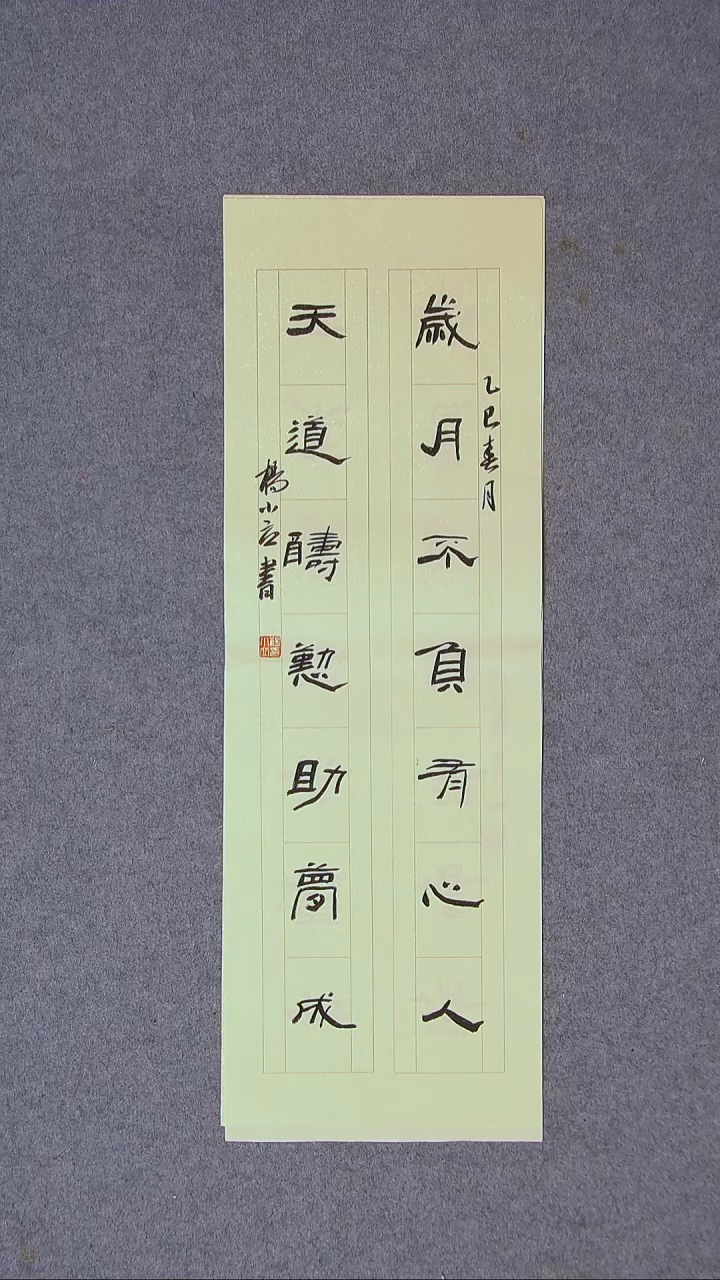 歲月不負有心人
天道酬懃助夢成
乙巳春月
楊小言書